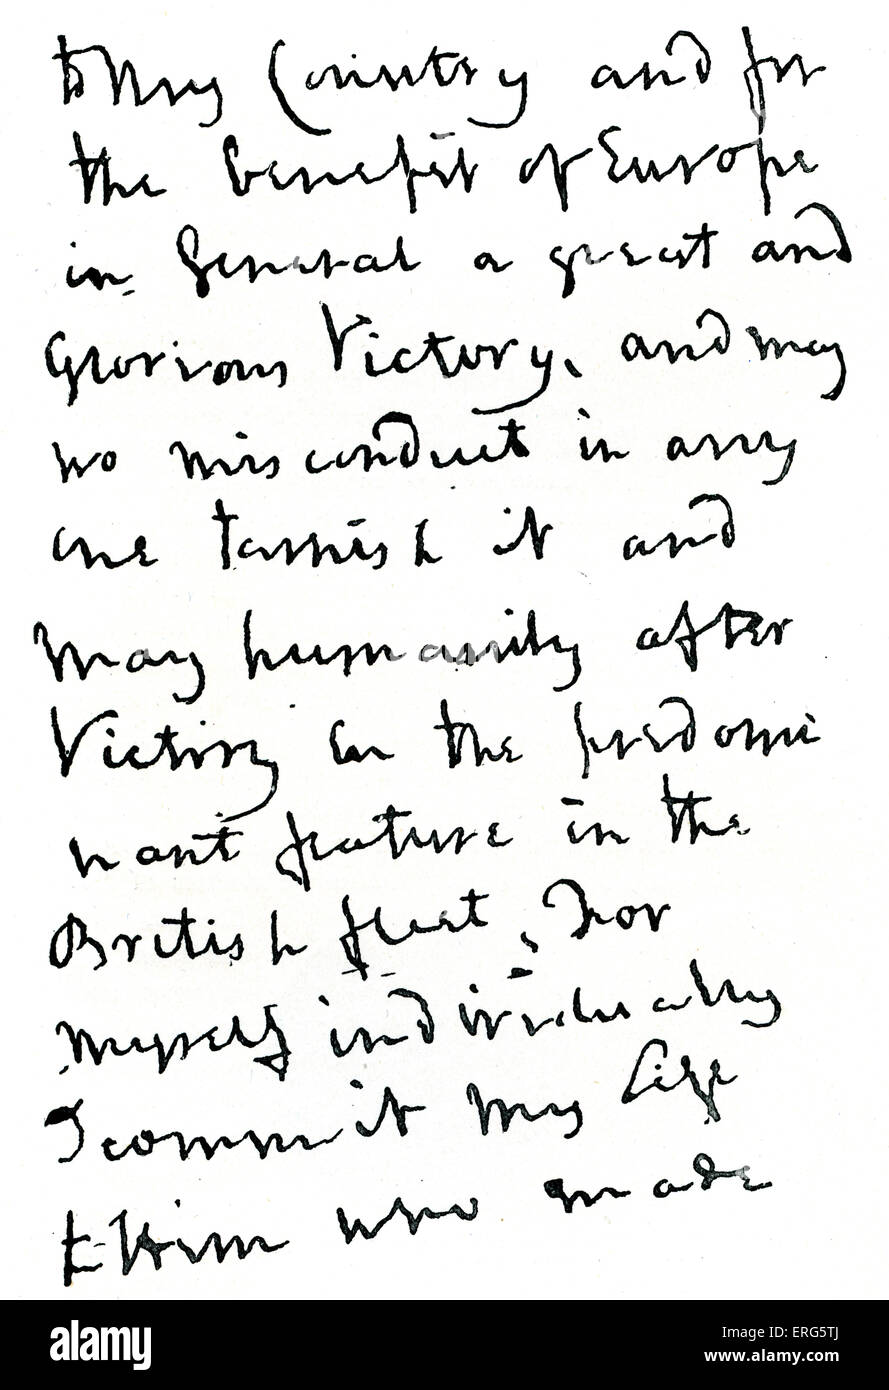 to My Country and for
the benefit of Europe
in General a great and
Glorious Victory, and may
no misconduct in any
one tarnish it and
May humanity after
Victory be the predomi
nant feature in the
British fleet, For
Myself individually
I commit My Life
to Him who made
a
alamy
Image ID: ERG5TJ
www.alamy.com